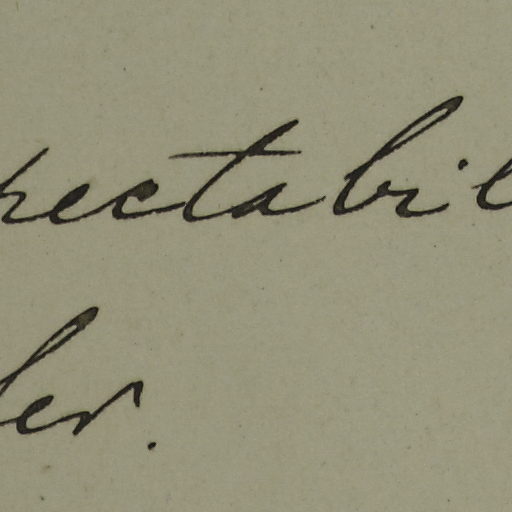 pectabil
ler.